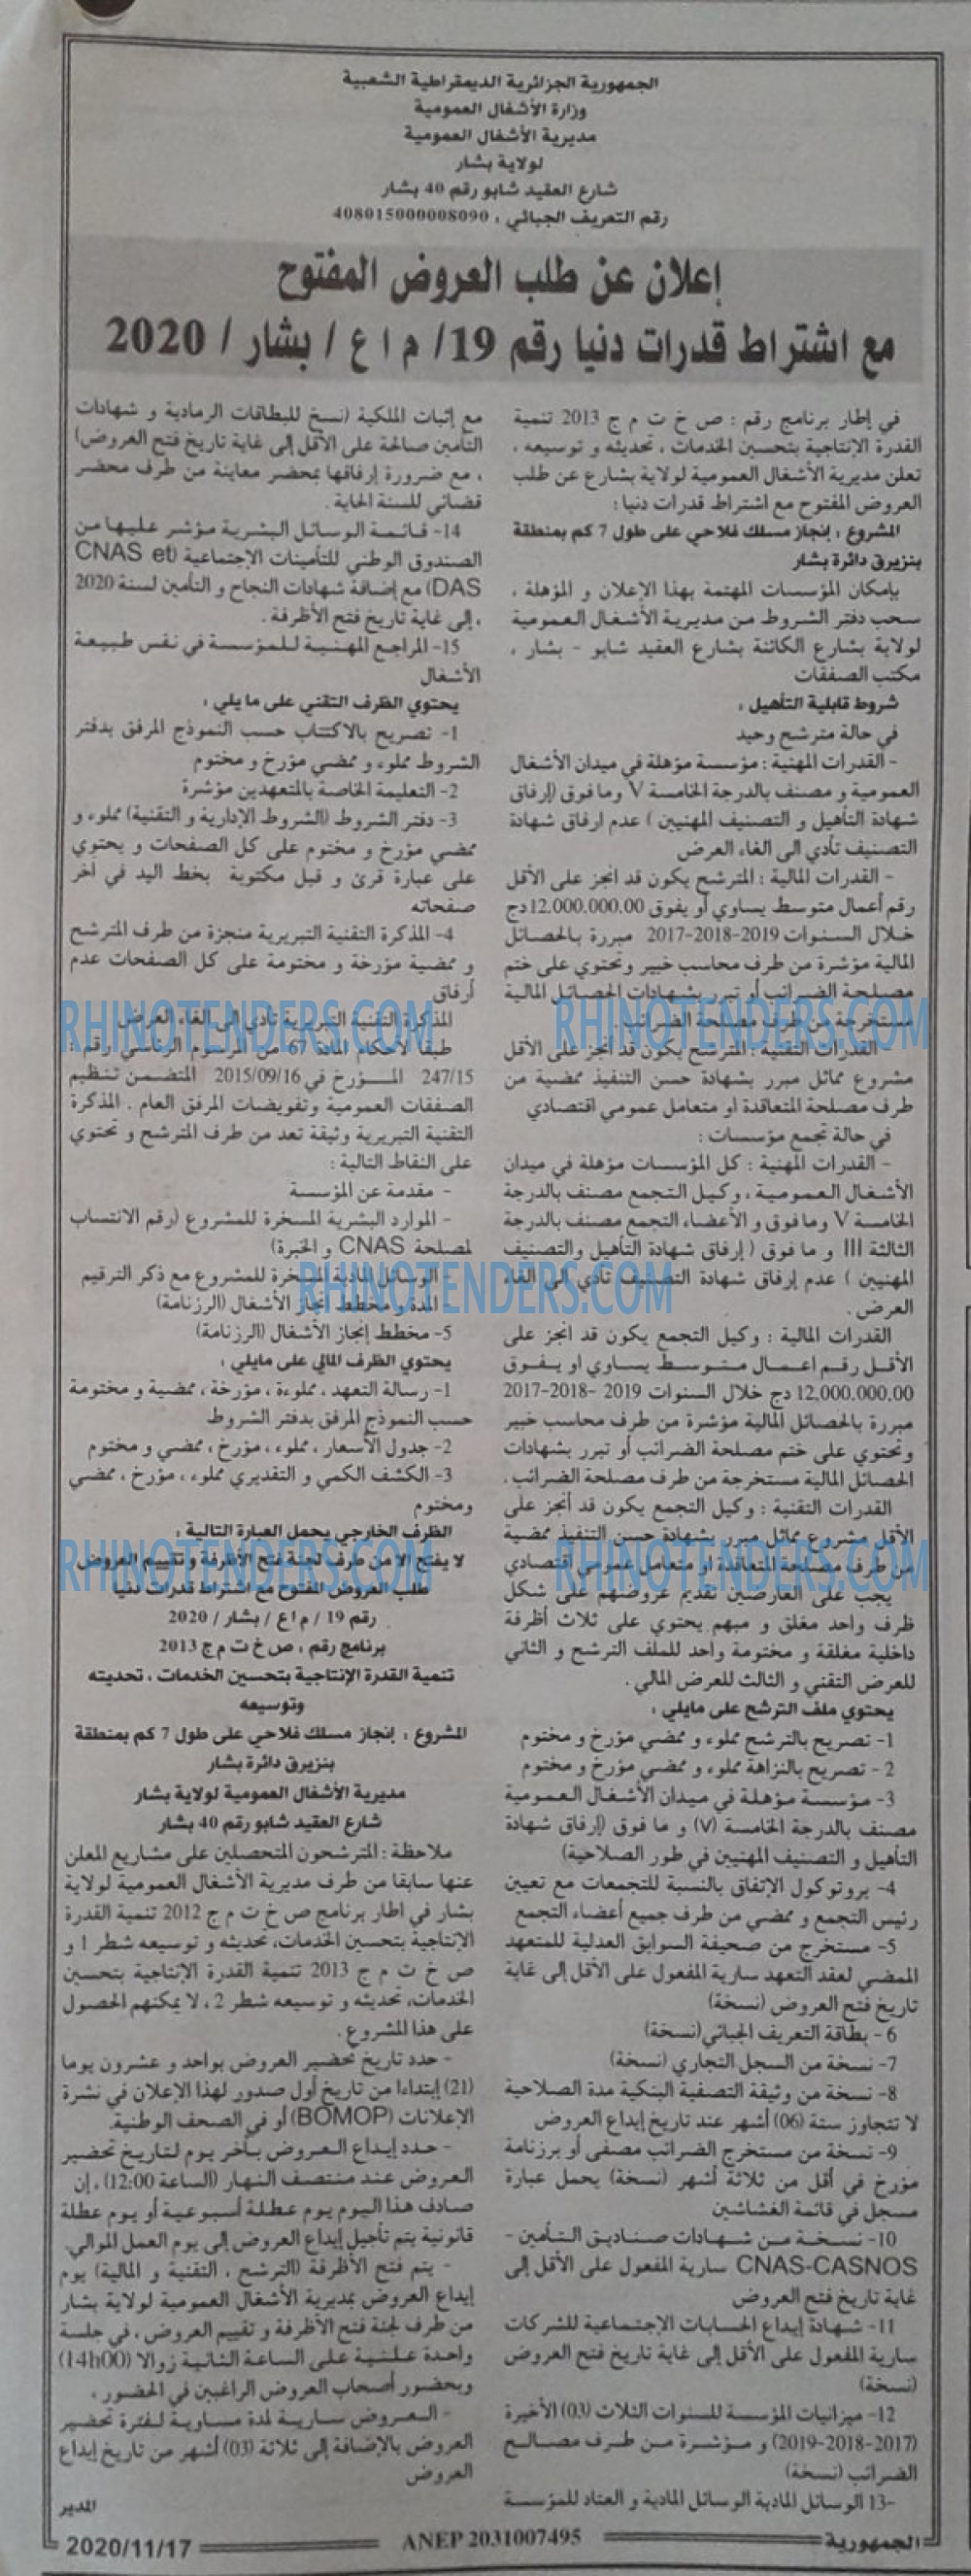 الجمهورية الجزائرية الديمقراطية الشعبية
وزارة الأشغال العمومية
مديرية الأشغال العمومية
لولاية بشار
شارع العقيد شابو رقم 40 بشار
رقم التعريف الجبائي : 408015000008090
إعلان عن طلب العروض المفتوح
مع اشتراط قدرات دنيا رقم 19/ م ا ع / بشار / 2020
في إطار برنامج رقم : ص خ ت م ج 2013 تنمية
القدرة الإنتاجية بتحسين الخدمات ، تحديثه و توسيعه ،
تعلن مديرية الأشغال العمومية لولاية بشارع عن طلب
العروض المفتوح مع اشتراط قدرات دنيا :
المشروع : إنجاز مسلك فلاحي على طول 7 كم بمنطقة
بنزيرق دائرة بشار
بإمكان المؤسسات المهتمة بهذا الإعلان و المؤهلة ،
سحب دفتر الشروط من مديرية الأشغال العمومية
لولاية بشارع الكائنة بشارع العقيد شابو - بشار ،
مكتب الصفقات
شروط قابلية التأهيل :
في حالة مترشح وحيد
- القدرات المهنية : مؤسسة مؤهلة في ميدان الأشغال
العمومية و مصنف بالدرجة الخامسة V وما فوق (إرفاق
شهادة التأهيل و التصنيف المهنيين ) عدم ارفاق شهادة
التصنيف تأدي الى الغاء العرض
- القدرات المالية : المترشح يكون قد انجز على الأقل
رقم أعمال متوسط يساوي أو يفوق 12.000.000.00دج
خلال السنوات 2019-2018-2017 مبررة بالحصائل
المالية مؤشرة من طرف محاسب خبير وتحتوي على ختم
مصلحة الضرائب أو تبرر بشهادات الحصائل المالية
مستخرجة من طرف مصلحة الضرائب
القدرات التقنية : المترشح يكون قد أنجز على الأقل
مشروع مماثل مبرر بشهادة حسن التنفيذ ممضية من
طرف مصلحة المتعاقدة او متعامل عمومي اقتصادي
في حالة تجمع مؤسسات :
- القدرات المهنية : كل المؤسسات مؤهلة في ميدان
الأشغال العمومية ، وكيل التجمع مصنف بالدرجة
الخامسة V وما فوق و الأعضاء التجمع مصنف بالدرجة
الثالثة III و ما فوق ( إرفاق شهادة التأهيل والتصنيف
المهنيين ) عدم إرفاق شهادة التصنيف تأدي الى الغاء
العرض .
القدرات المالية : وكيل التجمع يكون قد انجز على
الأقل رقم اعمال متوسط يساوي او يفوق
12.000.000.00 دج خلال السنوات 2019 -2018-2017
مبررة بالحصائل المالية مؤشرة من طرف محاسب خبير
وتحتوي على ختم مصلحة الضرائب أو تبرر بشهادات
الحصائل المالية مستخرجة من طرف مصلحة الضرائب .
القدرات التقنية : وكيل التجمع يكون قد أنجز على
الأقل مشروع مماثل مبرر بشهادة حسن التنفيذ ممضية
من طرف مصلحة المتعاقدة او متعامل عمومي اقتصادي
يجب على العارضين تقديم عروضهم على شكل
ظرف واحد مغلق و مبهم يحتوي على ثلاث أظرفة
داخلية مغلقة و مختومة واحد للملف الترشح و الثاني
للعرض التقني و الثالث للعرض المالي .
يحتوي ملف الترشح على مايلي :
1- تصريح بالترشح مملوء و ممضي مؤرخ و مختوم
2 - تصريح بالنزاهة مملوء و ممضي مؤرخ و مختوم
3- مؤسسة مؤهلة في ميدان الأشغال العمومية
مصنف بالدرجة الخامسة (V) و ما فوق (إرفاق شهادة
التأهيل و التصنيف المهنيين في طور الصلاحية)
4- بروتوكول الإتفاق بالنسبة للتجمعات مع تعيين
رئيس التجمع و ممضي من طرف جميع أعضاء التجمع
5- مستخرج من صحيفة السوابق العدلية للمتعهد
الممضي لعقد التعهد سارية المفعول على الأقل إلى غاية
تاريخ فتح العروض (نسخة)
6 - بطاقة التعريف الجبائي(نسخة)
7- نسخة من السجل التجاري (نسخة)
8- نسخة من وثيقة التصفية البنكية مدة الصلاحية
لا تتجاوز ستة (06) أشهر عند تاريخ إيداع العروض
9- نسخة من مستخرج الضرائب مصفى أو برزنامة
مؤرخ في أقل من ثلاثة أشهر (نسخة) يحمل عبارة
مسجل في قائمة الغشاشين
10- نسخة من شهادات صناديق التأمين -
CNAS-CASNOS سارية المفعول على الأقل إلى
غاية تاريخ فتح العروض
11- شهادة إيداع الحسابات الإجتماعية للشركات
سارية المفعول على الأقل إلى غاية تاريخ فتح العروض
(نسخة)
12- ميزانيات المؤسسة للسنوات الثلاث (03) الأخيرة
(2017-2018-2019) و مؤشرة من طرف مصالح
الضرائب (نسخة)
13- الوسائل المادية الوسائل المادية و العتاد للمؤسسة
مع إثبات الملكية (نسخ للبطاقات الرمادية و شهادات
التأمين صالحة على الأقل إلى غاية تاريخ فتح العروض)
، مع ضرورة إرفاقها بمحضر معاينة من طرف محضر
قضائي للسنة الحاية .
14- قائمة الوسائل البشرية مؤشر عليها من
الصندوق الوطني للتأمينات الإجتماعية (CNAS et
DAS) مع إضافة شهادات النجاح و التأمين لسنة 2020
، إلى غاية تاريخ فتح الأظرفة .
15- المراجع المهنية للمؤسسة في نفس طبيعة
الأشغال
يحتوي الظرف التقني على ما يلي :
1- تصريح بالاكتتاب حسب النموذج المرفق بدفتر
الشروط مملوء و ممضي مؤرخ و مختوم
2- التعليمة الخاصة بالمتعهدين مؤشرة
3- دفتر الشروط (الشروط الإدارية و التقنية) مملوء و
ممضي مؤرخ و مختوم على كل الصفحات و يحتوي
على عبارة قرئ و قبل مكتوبة بخط اليد في آخر
صفحاته
4- المذكرة التقنية التبريرية منجزة من طرف المترشح
و ممضية مؤرخة و مختومة على كل الصفحات عدم
أرفاق
المذكرة التقنية التبريرية تأدي الى الغاء العرض
طبقا لأحكام المادة 67 من المرسوم الرئاسي رقم :
247/15 المؤرخ في 2015/09/16 المتضمن تنظيم
الصفقات العمومية وتفويضات المرفق العام . المذكرة
التقنية التبريرية وثيقة تعد من طرف المترشح و تحتوي
على النقاط التالية :
- مقدمة عن المؤسسة
- الموارد البشرية المسخرة للمشروع (رقم الانتساب
لمصلحة CNAS و الخبرة)
الوسائل المادية المسخرة للمشروع مع ذكر الترقيم
- المدة و مخطط إنجاز الأشغال (الرزنامة)
5- مخطط إنجاز الأشغال (الرزنامة)
يحتوي الظرف المالي على مايلي :
1- رسالة التعهد ، مملوءة ، مؤرخة ، ممضية و مختومة
حسب النموذج المرفق بدفتر الشروط
2- جدول الأسعار ، مملوء ، مؤرخ ، ممضي و مختوم
3- الكشف الكمي و التقديري مملوء ، مؤرخ ، ممضي
ومختوم
الظرف الخارجي يحمل العبارة التالية :
لا يفتح إلا من طرف لجنة فتح الأظرفة و تقييم العروض
طلب العروض المفتوح مع اشتراط قدرات دنيا
رقم 19 / م ا ع / بشار / 2020
برنامج رقم : ص خ ت م ج 2013
تنمية القدرة الإنتاجية بتحسين الخدمات ، تحديثه
وتوسيعه
المشروع : إنجاز مسلك فلاحي على طول 7 كم بمنطقة
بنزيرق دائرة بشار
مديرية الأشغال العمومية لولاية بشار
شارع العقيد شابو رقم 40 بشار
ملاحظة : المترشحون المتحصلين على مشاريع المعلن
عنها سابقا من طرف مديرية الأشغال العمومية لولاية
بشار في اطار برنامج ص خ ت م ج 2012 تنمية القدرة
الإنتاجية بتحسين الخدمات، تحديثه و توسيعه شطر 1 و
ص خ ت م ج 2013 تنمية القدرة الإنتاجية بتحسين
الخدمات، تحديثه و توسيعه شطر 2 ، لا يمكنهم الحصول
على هذا المشروع .
- حدد تاريخ تحضير العروض بواحد و عشرون يوما
(21) إبتداءا من تاريخ أول صدور لهذا الإعلان في نشرة
الإعلانات (BOMOP) أو في الصحف الوطنية.
- حدد إيداع العروض بآخر يوم لتاريخ تحضير
العروض عند منتصف النهار (الساعة 12:00) ، إن
صادف هذا اليوم يوم عطلة أسبوعية أو يوم عطلة
قانونية يتم تأجيل إيداع العروض إلى يوم العمل الموالي.
- يتم فتح الأظرفة (الترشح ، التقنية و المالية) يوم
إيداع العروض بمديرية الأشغال العمومية لولاية بشار
من طرف لجنة فتح الأظرفة و تقييم العروض ، في جلسة
واحدة علنية على الساعة الثانية زوالا (14h00)
وبحضور أصحاب العروض الراغبين في الحضور .
- العروض سارية لمدة مساوية لفترة تحضير
العروض بالإضافة إلى ثلاثة (03) أشهر من تاريخ إيداع
العروض
المدير
RHINOTENDERS.COM
RHINOTENDERS.COM
RHINOTENDERS.COM
RHINOTENDERS.COM
RHINOTENDERS.COM
الجمهورية
ANEP 2031007495
2020/11/17